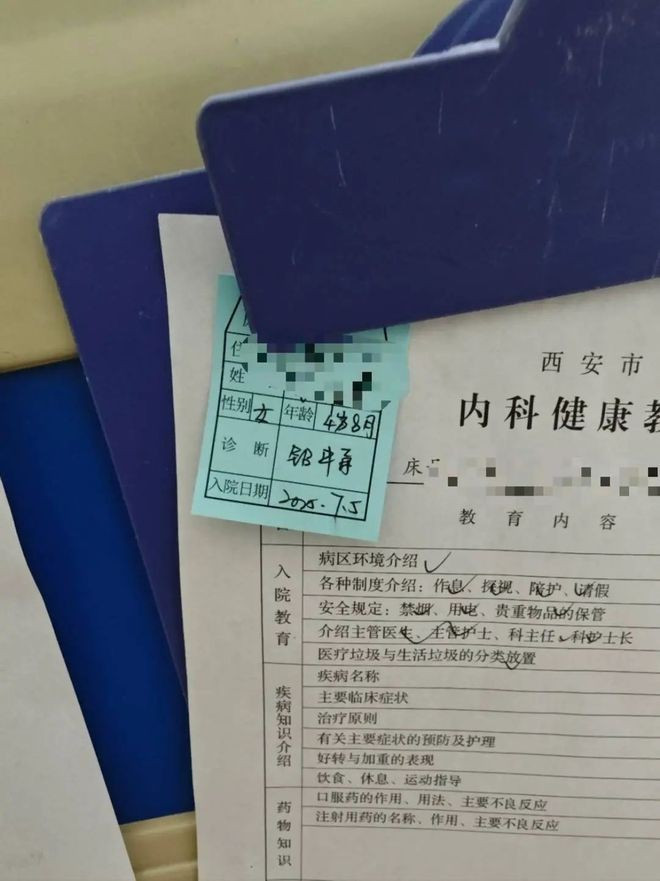 住
姓
性别 女 年龄 4岁8月
诊断 铅中毒
入院日期 2025.7.5
西安市
内科健康教
床
教育内容
入院教育
病区环境介绍
各种制度介绍：作息、探视、陪护、请假
安全规定：禁烟、用电、贵重物品的保管
介绍主管医生、主管护士、科主任、科护士长
医疗垃圾与生活垃圾的分类放置
疾病知识介绍
疾病名称
主要临床症状
治疗原则
有关主要症状的预防及护理
好转与加重的表现
饮食、休息、运动指导
药物知识
口服药的作用、用法、主要不良反应
注射用药的名称、作用、主要不良反应